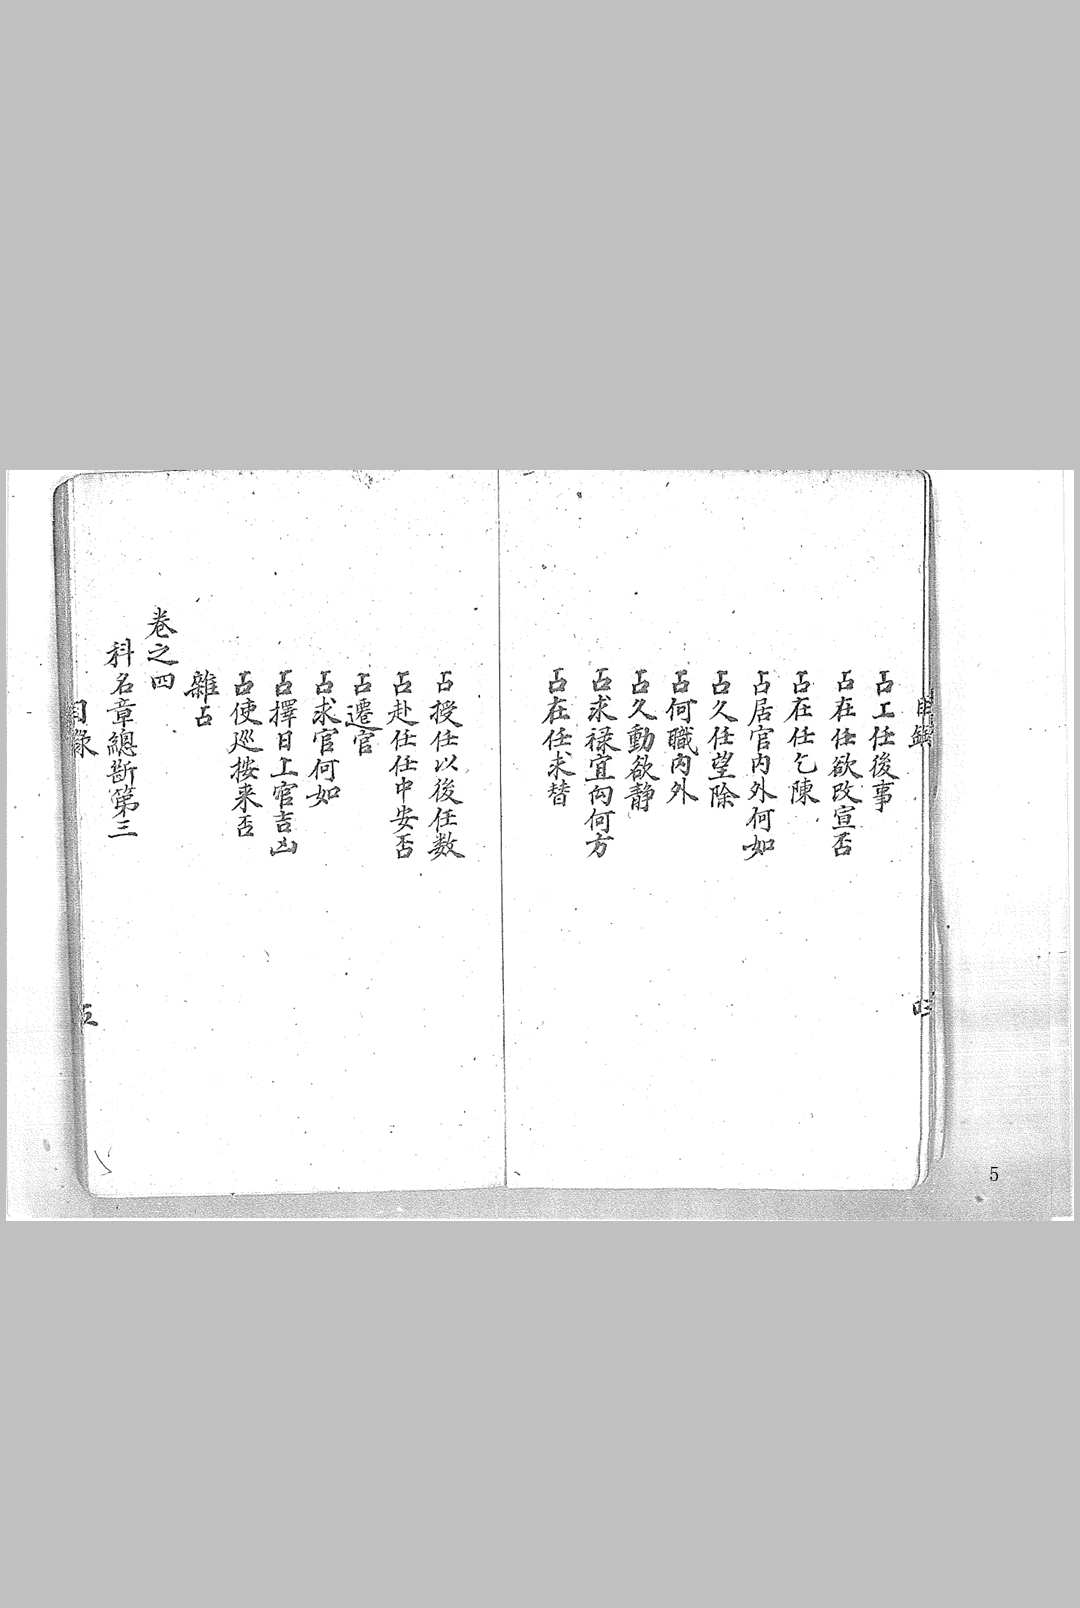 目錄
占工任後事
占在任欲改宣否
占在任乞陳
占居官内外何如
占久任望除
占何職内外
占久動欲静
占求禄宜向何方
占在任求替
占授任以後任数
占赴任任中安否
占遷官
占求官何如
占擇日上官吉凶
占使巡按来否
雜占
卷之四
科名章總斷第三
目錄
5